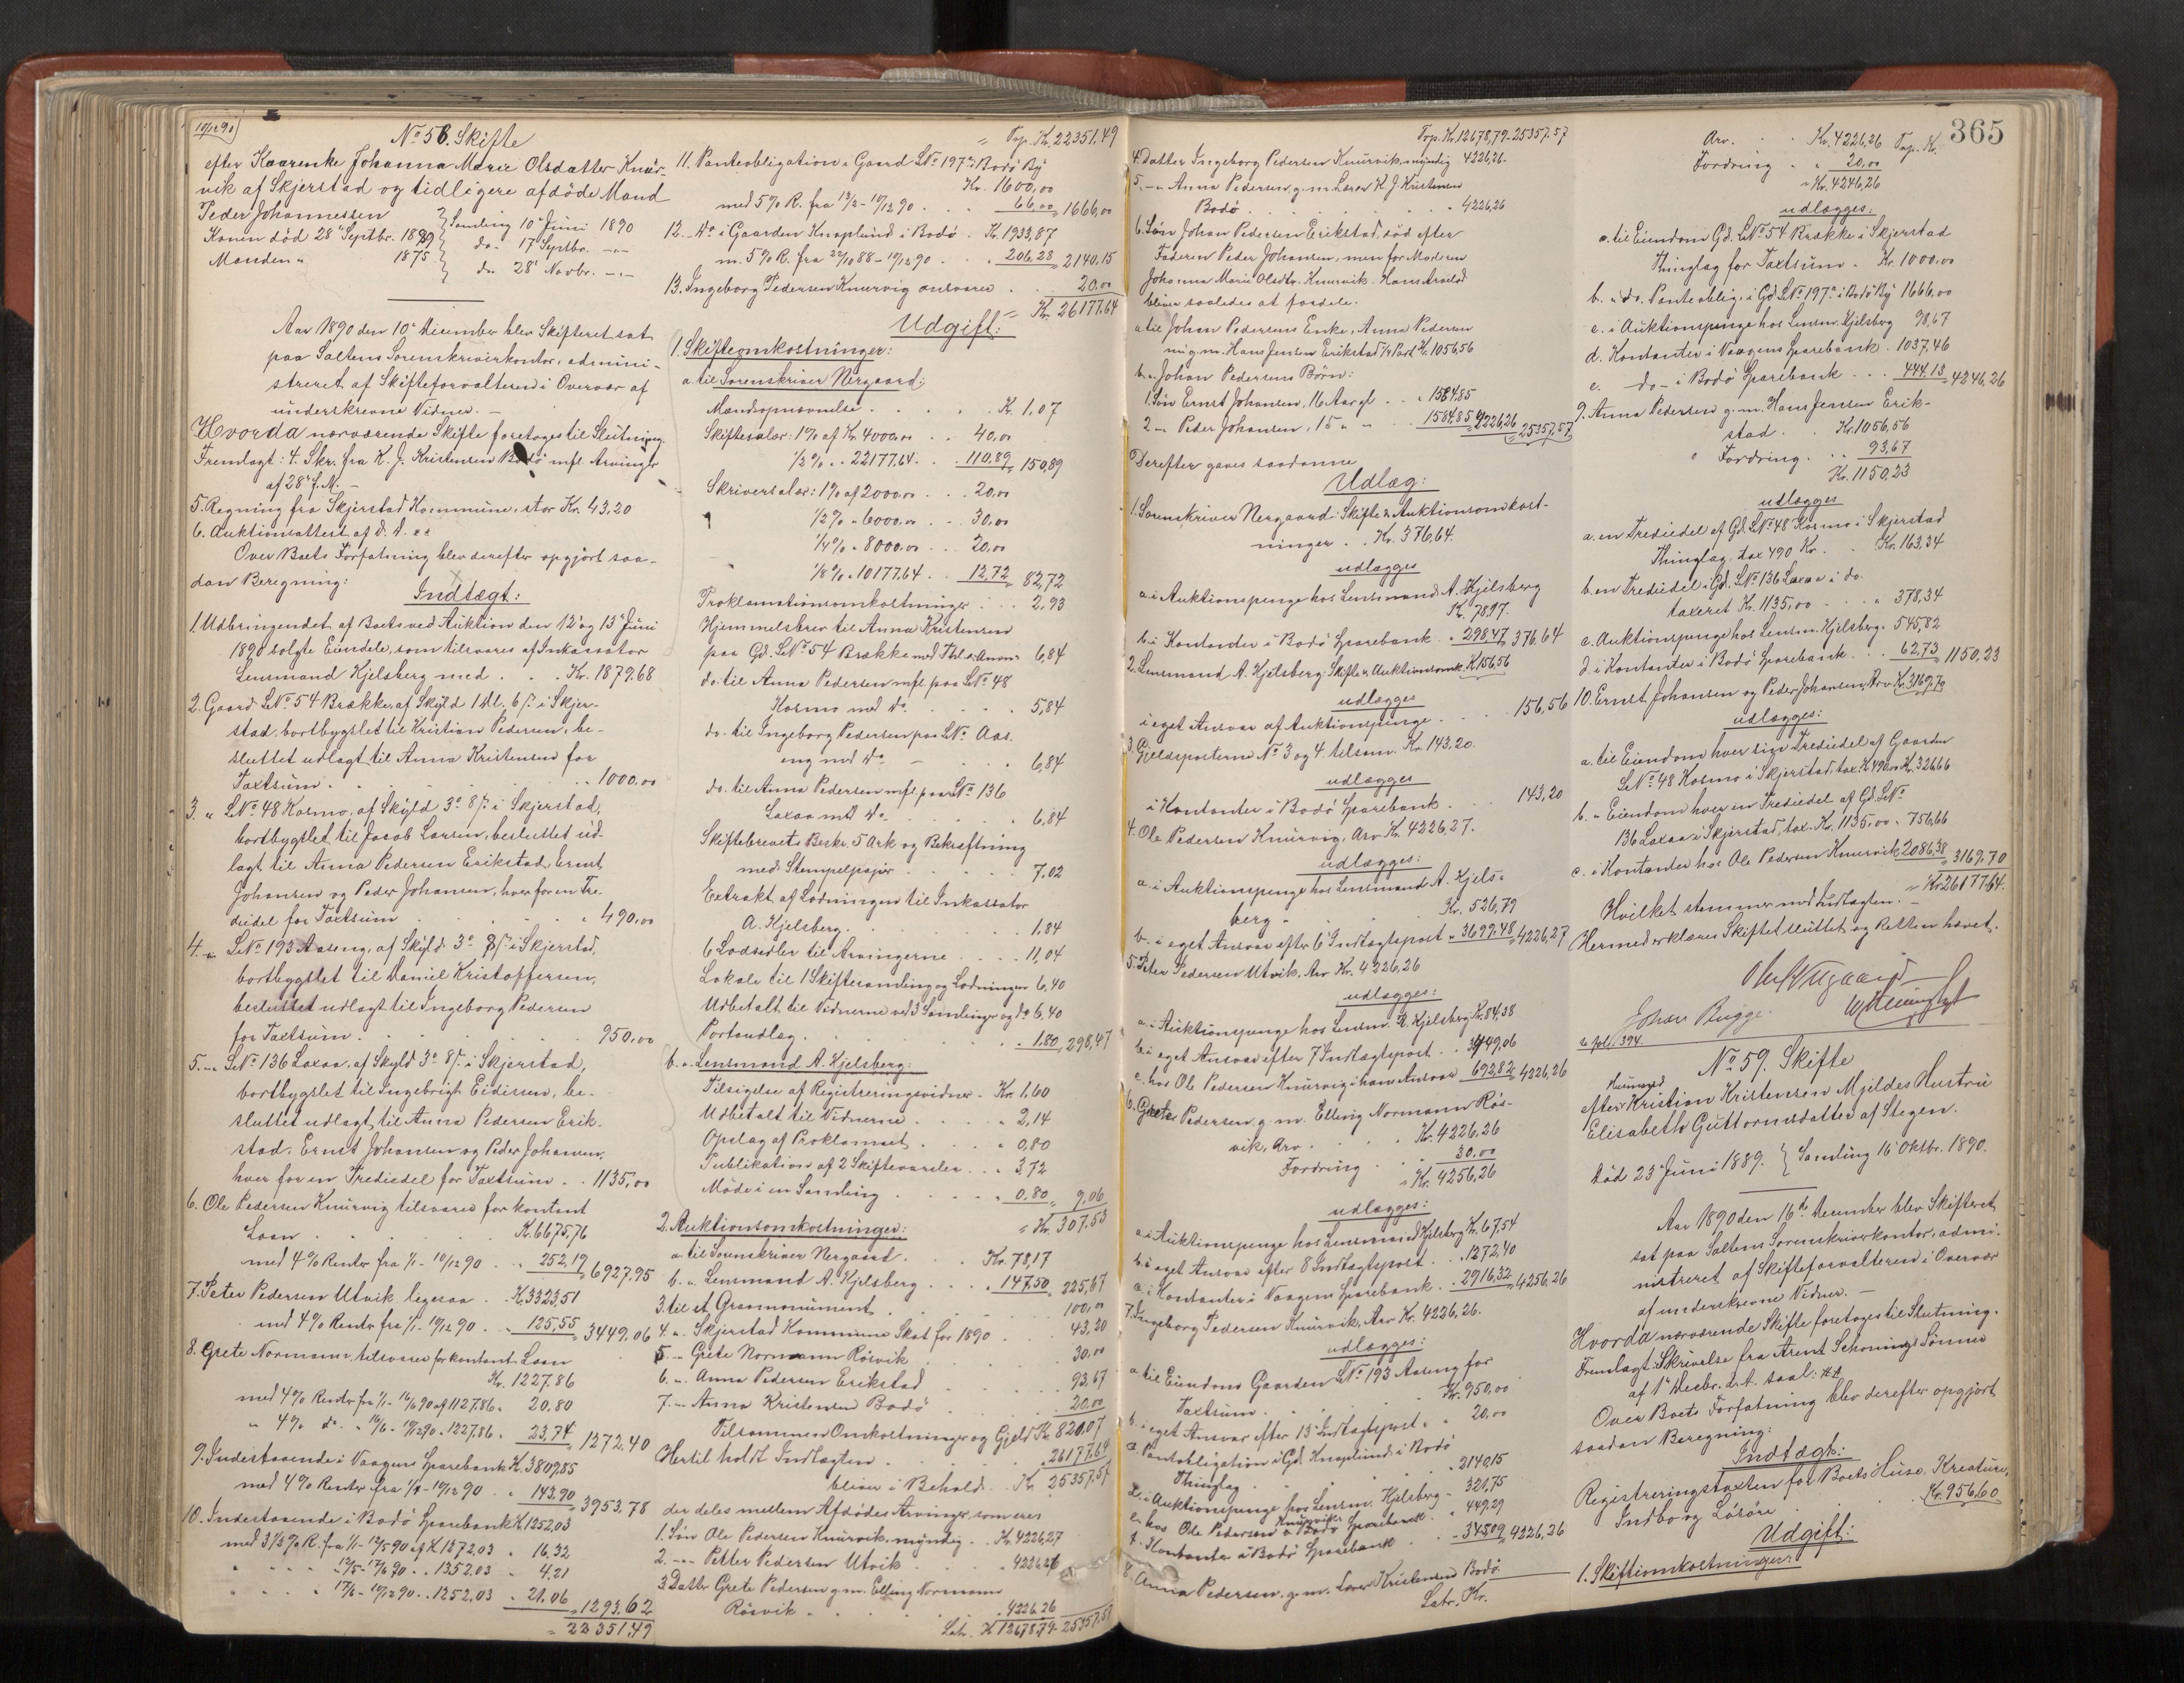 10/12 90
No 58. Skifte
efter Kaarenke Johanna Marie Olsdatter Knur-
vik af Skjerstad og tidligere afdöde Mand
Peder Johannessen } Samling 10de Juni 1890
Konen död 28de Septbr. 1889 } do - 17 Septbr. -"-
Manden " 1875 } do 28de Novbr. -"-
Aar 1890 den 10de December blev Skifteret sat
paa Saltens Sorenskriverkontor, admini-
streret af Skifteforvalteren i Overvær af
underskrevne Vidner. -
Hvorda nærværende Skifte foretoges til Slutning.
Fremlagt: 4. Skr. fra K. J. Kristensen Bodö mfl. Arvinger
af 28de f. M. -
5. Regning fra Skjerstad Kommune, stor Kr. 43.20
6. Auktionsattest af d. D.
Over Boets Forfatning blev derefter opgjort saa-
dan Beregning:
Indtægt:
1. Udbringendet af Boets ved Auktion den 12te og 13de Juni
1890 solgte Eiendele, som tilsvares af Inkassator
Lensmand Kjelsberg med . . Kr. 1879.68
2. Gaard LNo 54 Brække, af Skyld 1 Dl. 6 s. i Skjer-
stad, bortbygslet til Kristian Pedersen, be-
sluttet udlagt til Anna Kristensen for
Taxtsum . . . 1000.00
3. " LNo 48 Kosmo, af Skyld 3 o. 8 s. i Skjerstad,
bortbygslet til Jacob Larsen, besluttet ud-
lagt til Anna Pedersen Erikstad, Ernst
Johansen og Peder Johansen, hver for en Tre-
diedel for Taxtsum . . " 490.00
4. " LNo 193 Aaseng, af Skyld 3 o. 8 s. i Skjerstad,
bortbygslet til Daniel Kristoffersen,
besluttet udlagt til Ingeborg Pedersen
for Taxtsum . . . 950.00
5. " LNo 136 Laxaa, af Skyld 3 o. 8 s. i Skjerstad,
bortbygslet til Ingebrigt Eidissen, be-
sluttet udlagt til Anna Pedersen Erik-
stad, Ernst Johansen og Peder Johansen,
hver for en Trediedel for Taxtsum . . 1135,00
6. Ole Pedersen Knurvig tilsvarer for kontant
Laan . . . Kr. 6675,76
med 4% Renter fra 1/1 - 10/12 90 . . 252,19 = 6927.95
7. Peter Pedersen Utvik ligesaa . . Kr. 3323,51
med 4% Renter fra 1/1 - 10/12 90 . . 125,55 = 3449.06
8. Grete Normann tilsvarer for kontant Laan
Kr. 1227.86
med 4% Renter fra 1/1 - 16/6 90 af 1127.86 . 20.80
" 4% do " 16/6 - 10/12 90 . 1227,86 . 23,74 = 1272.40
9. Indestaaende i Vaagens Sparebank Kr. 3809,85
med 4% Renter fra 1/1 - 10/12 90 . 143,90 3953,78
10. Indestaaende i Bodö Sparebank Kr. 1252,03
med 3 1/2 % R. fra 1/1 - 12/5 90 af Kr. 1372,03 . 16.32
" " " 12/5 - 17/6 90 . . 1352.03 . 4.21
" " " 17/6 - 10/12 90 . . 1252,03 . 21.06 = 1293.62
= 22351,49
= Trp. Kr. 22351,49
11. Panteobligation i Gaard LNo 197a Bodö By
Kr. 1600,00
med 5% R. fra 12/2 - 10/12 90 . . 66,00 = 1666,00
12. - do i Gaarden Knaplund i Bodö . Kr. 1933,87
m. 5% R. fra 22/10 88 - 10/12 90 . . 206,28 = 2140,15
13. Ingeborg Pedersen Knurvig ansvarer . . 20,00
= Kr. 26177.64
Udgift:
1. Skifteomkostninger:
a. til Sorenskriver Nergaard:
Mandsopnævnelse . . . Kr. 1,07
Skiftesalær: 1% af Kr. 4000,00 . . 40,00
1/2% . . 22177.64 . . 110,89 = 150,89
Skriversalær: 1% af 2000.00 . . 20,00
1/2% " 6000.00 . . 30,00
1/4% " 8000,00 . . 20,00
1/8% " 10177.64 . . 12,72 = 82,72
Proklamationsomkostninger . . . 2,93
Hjemmelsbrev til Anna Kristensen
paa Gd. LNo 54 Brække med 6,84
do. til Anna Pedersen mfl. paa LNo 48
Kosmo med do . . . 5,84
do. til Ingeborg Pedersen paa LNo Aas-
eng med do - . . 6,84
do. til Anna Pedersen mfl. paa LNo 136
Laxaa med do . . . 6,84
Skiftebrevets Beskr. 5 Ark og Bekræftning
med Stempelpapir . . . 7,02
Extrakt af Lodningen til Inkassator
A. Kjelsberg . . . 1,84
6 Lodsedler til Arvingerne . . . 11,04
Lokale til 1 Skiftesamling og Lodningen 6,40
Udbetalt til Vidnerne ved 3 Samlinger og do 6,40
Portoudlæg . . . 1,80 = 298,47
b. " Lensmand A. Kjelsberg:
Tilsigelse af Registreringsvidner . Kr. 1,60
Udbetalt til Vidnerne . . . 2,14
Opslag af Proklamaet . . . 0,80
Publikation af 2 Skiftevarsler . . 3,72
Möde i en Samling . . . 0,80 = 9,06
= Kr. 307,53
2. Auktionsomkostninger:
a. til Sorenskriver Nergaard . . Kr. 78,17
b. " Lensmand A. Kjelsberg . . . 147,50 = 225,67
3. til et Gravmonument . . . 100,00
4. " Skjerstad Kommune Skat for 1890 . . 43,20
5. " Grete Normann Rösvik . . . 30,00
6. " Anna Pedersen Erikstad . . 93,67
7. " Anna Kristensen Bodö . . 20,00
Tilsammen Omkostninger og Gjeld Kr. 820,07
Hertil holdt Indtægten . . . 26177,64
bliver i Behold . Kr. 25357,57
der deles mellem Afdödes Arvinger som er:
1. Sön Ole Pedersen Knurvik, myndig . . Kr. 4226,27
2. -"- Petter Pedersen Utvik . . . 4226,26
3. Datter Grete Pedersen g. m. Elling Normann
Rösvik . . . 4226.26
Latr. Kr. 12678,79 - 25357,57
Trp. Kr. 12678,79 - 25357.57
4. Datter Ingeborg Pedersen Knurvik, myndig 4226,26 -
5. -"- Anna Pedersen, g. m. Lærer K. J. Kristensen
Bodö . . . " 4226,26
6. Sön Johan Pedersen Erikstad, död efter
Faderen Peder Johansen, men för Moderen
Johanna Marie Olsdtr. Knurvik. Hans Arvelod
bliver saaledes at fordele.
a. til Johan Pedersens Enke, Anna Pedersen
nu g. m. Hans Jensen Erikstad 1/4 Part Kr. 1056,56
b. " Johan Pedersens Börn:
1. Sön Ernst Johansen, 16 Aar gl . . " 1584,85
2 -"- Peder Johansen, 15 " " . . 1584,85 = 4226,26 = 25357,57
Derefter gaves saadanne
Udlæg:
1. Sorenskriver Nergaard: Skifte & Auktionsomkost-
ninger . . Kr. 376,64.
udlægges
a. i Auktionspenge hos Lensmand A. Kjelsberg
Kr. 78,17.
b. i Kontanter i Bodö Sparebank . . 298,47 376,64
2. Lensmand A. Kjelsberg: Skifte & Auktionsomk. Kr. 156,56
udlægges
i eget Ansvar af Auktionspenge . . . 156,56
3. Gjeldsposterne No 3 og 4 tilsam. Kr. 143,20.
udlægges
i Kontanter i Bodö Sparebank . . . 143,20
4. Ole Pedersen Knurvig, Arv Kr. 4226,27.
udlægges:
a. i Auktionspenge hos Lensmand A. Kjels-
berg . . . Kr. 526,79
b. i eget Ansvar efter 6te Indtægtspost . . 3699,48 = 4226,27
5. Peter Pedersen Utvik, Arv Kr. 4226,26
udlægges:
a. i Auktionspenge hos Lensm. A. Kjelsberg Kr. 84,38
b. i eget Ansvar efter 7 Indtægtspost . . 3449,06
c. hos Ole Pedersen Knurvig i hans Ansvar 692,82 = 4226,26
6. Grete Pedersen g. m. Elling Normann Rös-
vik, Arv . . . Kr. 4226,26
Fordring . . . 30.00
= Kr. 4256,26
udlægges:
a. i Auktionspenge hos Lensmand Kjelsberg Kr. 67,54
b. i eget Ansvar efter 8 Indtægtspost . . 1272,40
c. i Kontanter i Vaagens Sparebank . . 2916,32 = 4256,26
7. Ingeborg Pedersen Knurvik, Arv Kr. 4226,26.
udlægges:
a. til Eiendom Gaarden LNo 193 Aaseng for
Taxtsum . . . Kr. 950,00
b. i eget Ansvar efter 13de Indtægtspost . . 20,00
c. Panteobligation i Gd. Knaplund i Bodö
Thinglag . . . 2140,15
d. i Auktionspenge hos Lensm. Kjelsberg - 321,75
e. hos Ole Pedersen Knurvik . . 449,29
f. Kontanter i Bodö Sparebank . . 345,09 = 4226,26
8. Anna Pedersen, g. m. Lærer Kristensen Bodö.
Latr. Kr.
365
Arv. . . Kr. 4226,26 Trp. Kr.
Fordring . . 20,00
= Kr. 4246,26
udlægges:
a. til Eiendom Gd. LNo 54 Brække i Skjerstad
Thinglag for Taxtsum . Kr. 1000,00
b. " do. Panteoblig. i Gd. LNo 197a i Bodö By 1666,00
c. i Auktionspenge hos Lensm. Kjelsberg 98,67
d. Kontanter i Vaagens Sparebank . 1037,46
e. -do- i Bodö Sparebank . . . 444,13 = 4246,26
9. Anna Pedersen g. m. Hans Jensen Erik-
stad . . Kr. 1056,56
Fordring . . . 93,67
Kr. 1150,23
udlægges
a. en Trediedel af Gd. LNo 48 Kosmo i Skjerstad
Thinglag, tax 490 Kr. . Kr. 163,34
b. en Trediedel i Gd. LNo 136 Laxaa i do.
taxeret Kr. 1135,00 . . " 378,34
c. Auktionspenge hos Lensm. Kjelsberg . 545,82
d. i Kontanter i Bodö Sparebank . . . 62,73 = 1150,23
10. Ernst Johansen og Peder Johansen, Arv Kr. 3169,70
udlægges:
a. til Eiendom hver sin Trediedel af Gaarden
LNo 48 Kosmo i Skjerstad, tax. Kr. 490,00 Kr. 326,66
b. " Eiendom hver en Trediedel af Gd. LNo
136 Laxaa i Skjerstad, tax. Kr. 1135,00 . 756,66
c. i Kontanter hos Ole Pedersen Knurvik 2086,38 = 3169,70
= Kr. 26177,64.
Hvilket stemmer med Indtægten. -
Hermed erklæres Skiftet sluttet og Retten hævet.
Johan Bugge.
se fol. 394.
No 59. Skifte
Husmand
efter Kristian Kristensen Mjeldes Hustru
Elisabeth Guttormsdatter af Stegen.
död 23de Juni 1889. } Samling 16 Oktbr. 1890.
Aar 1890 den 16de December blev Skifteret
sat paa Saltens Sorenskriverkontor, admi-
nistreret af Skifteforvalteren i Overvær
af underskrevne Vidner. -
Hvorda nærværende Skifte foretoges til Slutning.
Fremlagt: Skrivelse fra Arent Schönings Sönner
af 1de Decbr. d. A.
Over Boets Forfatning blev derefter opgjort
saadan Beregning:
Indtægt:
Registreringstaxten for Boets Huse, Kreature,
Indbo og Lösöre . . Kr. 956,60
Udgift:
1. Skifteomkostninger: